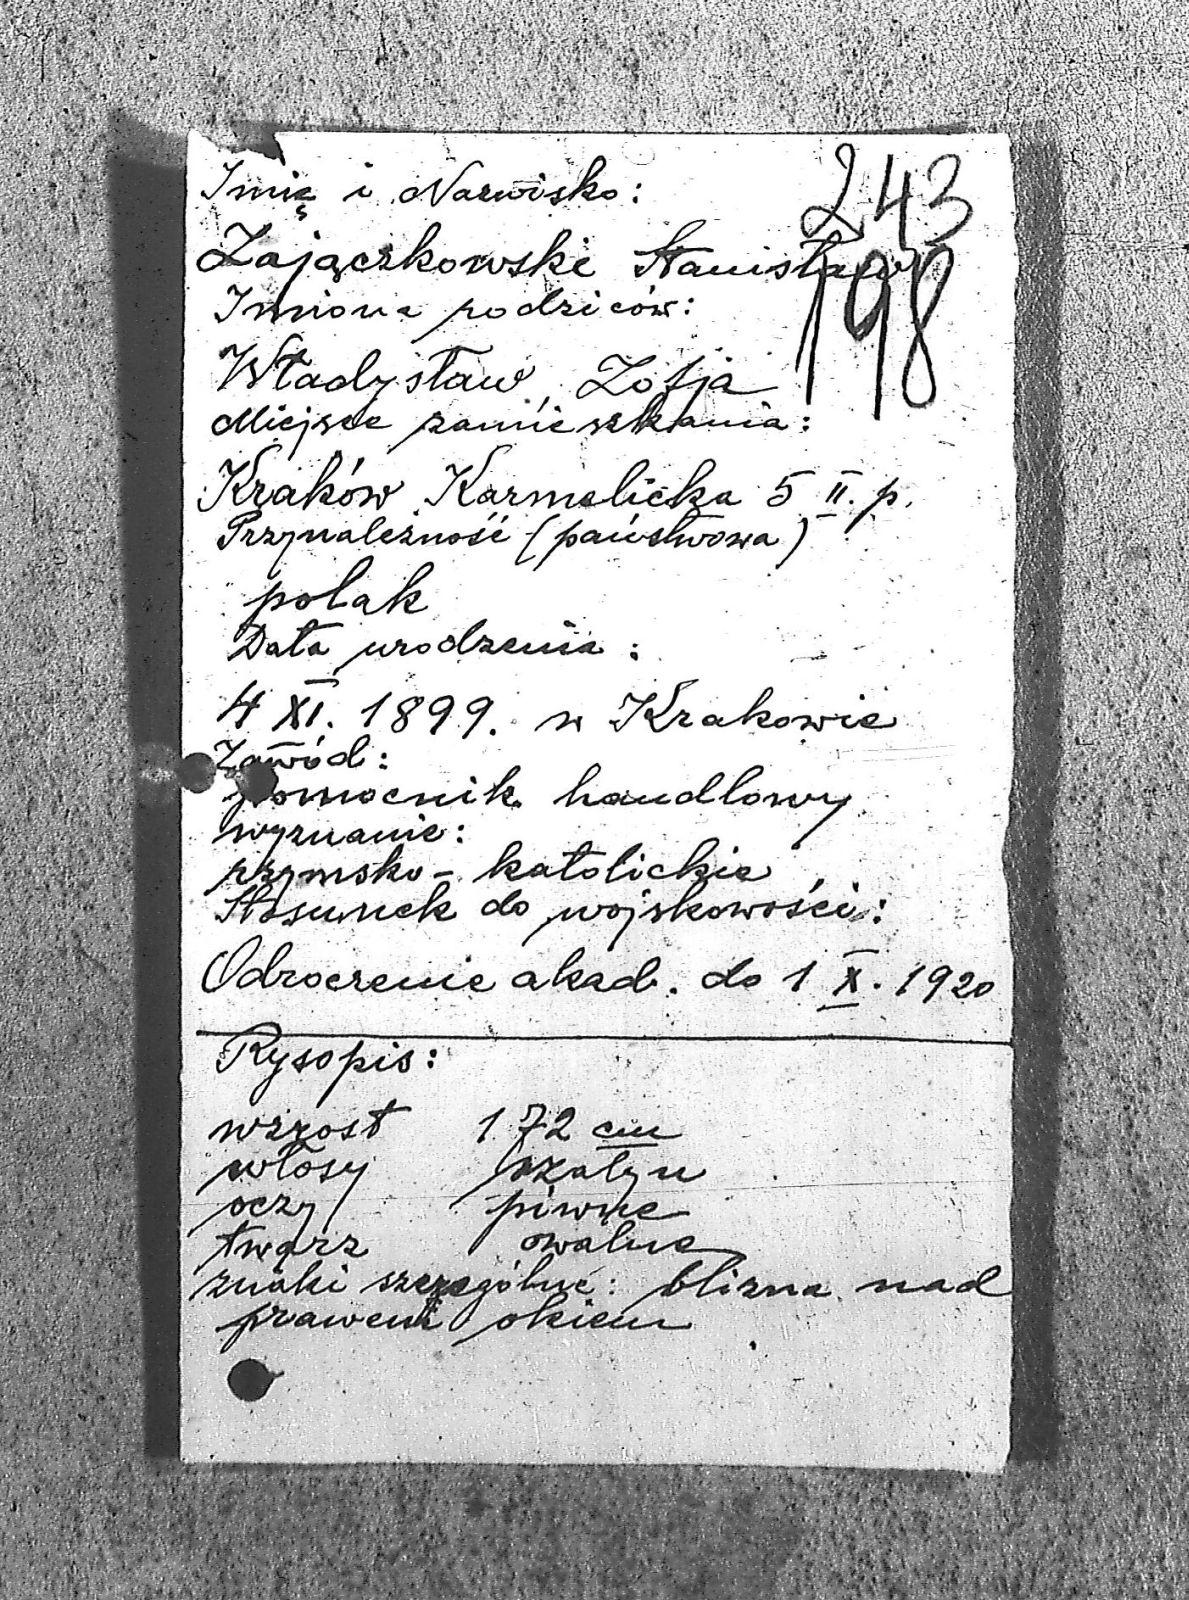 Imię i Nazwisko:
243
Zajączkowski Stanisław
198
Imiona rodziców:
Władysław, Zofja
Miejsce zamieszkania:
Kraków Karmelicka 5 II. p.
Przynależność (państwowa)
polak
Data urodzenia:
4 XI. 1899. w Krakowie
Zawód:
pomocnik handlowy
wyznanie:
rzymsko-katolickie
Stosunek do wojskowości:
Odroczenie akad. do 1 X. 1920
Rysopis:
wzrost 172 cm
włosy szatyn
oczy piwne
twarz owalne
znaki szczególne: blizna nad
prawem okiem